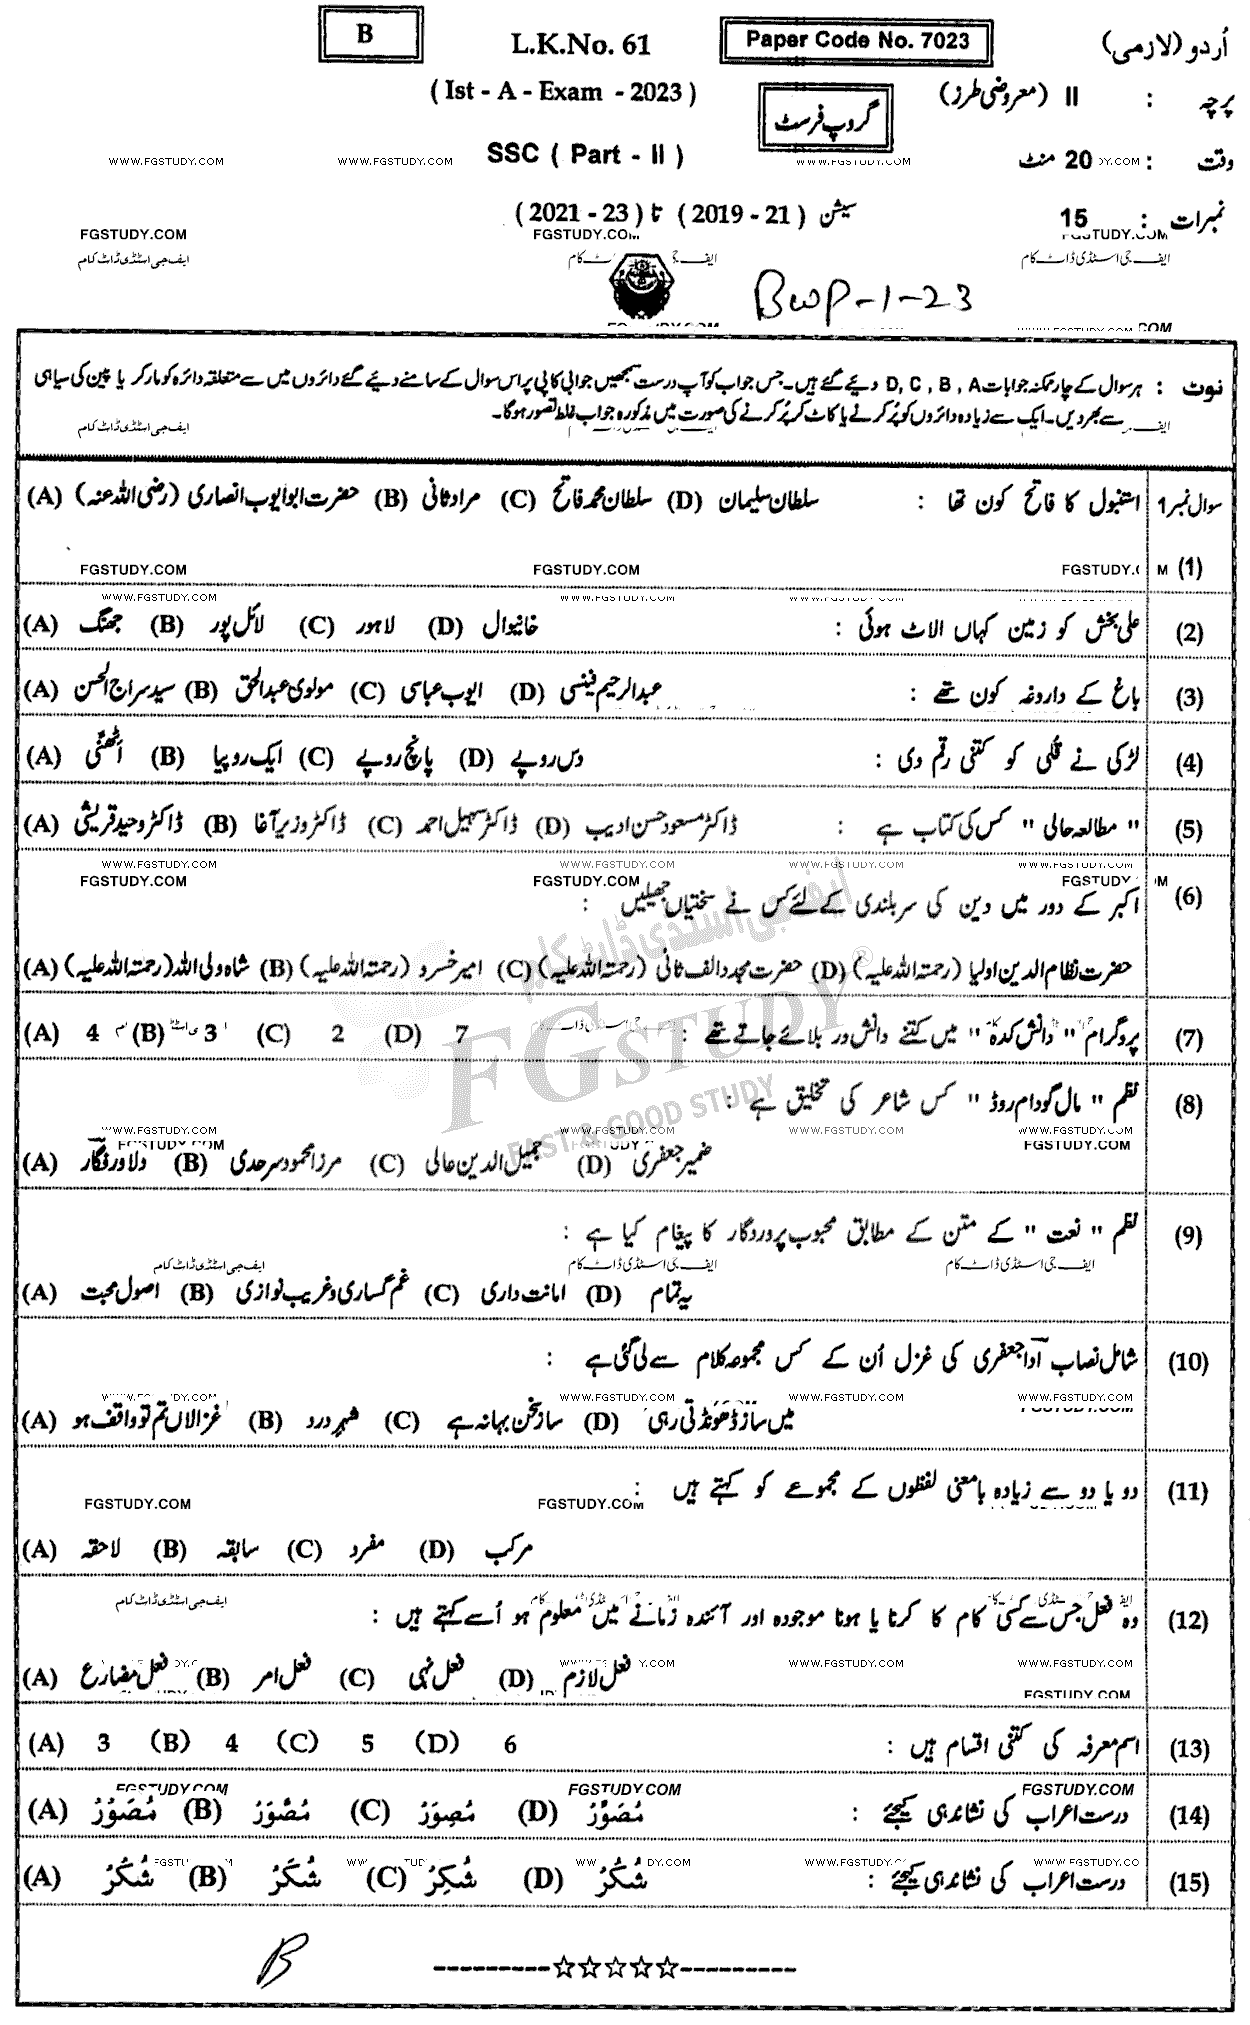 B
L.K.No. 61
Paper Code No. 7023
اُردو (لازمی)
(Ist - A - Exam - 2023)
گروپ فرسٹ
پرچہ : II (معروضی طرز)
WWW.FGSTUDY.COM WWW.FGSTUDY.COM SSC ( Part - II ) WWW.FGSTUDY.COM
وقت : 20 منٹ
سیشن (2019 - 21) تا (2021 - 23)
نمبرات : 15
FGSTUDY.COM FGSTUDY.COM FGSTUDY.COM
ایف جی اسٹڈی ڈاٹ کام ایف جی اسٹڈی ڈاٹ کام
BWP-1-23
نوٹ : ہر سوال کے چار ممکنہ جوابات A ، B ، C ، D دیئے گئے ہیں۔ جس جواب کو آپ درست سمجھیں جوابی کاپی پر اس سوال کے سامنے دیئے گئے دائروں میں سے متعلقہ دائرہ کو مارکر یا پین کی سیاہی
سے بھر دیں۔ ایک سے زیادہ دائروں کو پُر کرنے یا کاٹ کر پُر کرنے کی صورت میں مذکورہ جواب غلط تصور ہوگا۔
سوال نمبر 1
(1) استنبول کا فاتح کون تھا : (A) حضرت ابوایوب انصاری (رضی اللہ عنہ) (B) مراد ثانی (C) سلطان محمد فاتح (D) سلطان سلیمان
FGSTUDY.COM FGSTUDY.COM
(2) علی بخش کو زمین کہاں الاٹ ہوئی : (A) جھنگ (B) لائل پور (C) لاہور (D) خانیوال
(3) باغ کے داروغہ کون تھے : (A) سید سراج الحسن (B) مولوی عبدالحق (C) ایوب عباسی (D) عبدالرحیم فینسی
(4) لڑکی نے قلی کو کتنی رقم دی : (A) اٹھنّی (B) ایک روپیا (C) پانچ روپے (D) دس روپے
(5) " مطالعہ حالی " کس کی کتاب ہے : (A) ڈاکٹر وحید قریشی (B) ڈاکٹر وزیر آغا (C) ڈاکٹر سہیل احمد (D) ڈاکٹر مسعود حسن ادیب
(6) اکبر کے دور میں دین کی سربلندی کے لئے کس نے سختیاں جھیلیں :
(A) شاہ ولی اللہ (رحمتہ اللہ علیہ) (B) امیر خسرو (رحمتہ اللہ علیہ) (C) حضرت مجدد الف ثانی (رحمتہ اللہ علیہ) (D) حضرت نظام الدین اولیا (رحمتہ اللہ علیہ)
ایف جی اسٹڈی ڈاٹ کام
FGSTUDY
FAST & GOOD STUDY
(7) پروگرام " دانش کدہ " میں کتنے دانش ور بلائے جاتے تھے : (A) 4 (B) 3 (C) 2 (D) 7
(8) نظم " مال گودام روڈ " کس شاعر کی تخلیق ہے :
(A) دلاور نگار (B) مرزا محمود سرحدی (C) جمیل الدین عالی (D) ضمیر جعفری
(9) نظم " نعت " کے متن کے مطابق محبوب پروردگار کا پیغام کیا ہے :
(A) اصول محبت (B) غم گساری و غریب نوازی (C) امانت داری (D) یہ تمام
(10) شامل نصاب ادا جعفری کی غزل اُن کے کس مجموعہ کلام سے لی گئی ہے :
(A) غزالاں تم تو واقف ہو (B) شہر درد (C) ساز سخن بہانہ ہے (D) میں ساز ڈھونڈتی رہی
(11) دو یا دو سے زیادہ بامعنی لفظوں کے مجموعے کو کہتے ہیں :
FGSTUDY.COM FGSTUDY.COM
(A) لاحقہ (B) سابقہ (C) مفرد (D) مرکب
(12) وہ فعل جس سے کسی کام کا کرنا یا ہونا موجودہ اور آئندہ زمانے میں معلوم ہو اُسے کہتے ہیں :
(A) فعل مضارع (B) فعل امر (C) فعل نہی (D) فعل لازم
(13) اسم معرفہ کی کتنی اقسام ہیں : (A) 3 (B) 4 (C) 5 (D) 6
FGSTUDY.COM FGSTUDY.COM FGSTUDY.COM
(14) درست اعراب کی نشاندہی کیجئے : (A) (B) (C) (D)
(15) درست اعراب کی نشاندہی کیجئے : (A) (B) (C) (D)
B
---------☆☆☆☆☆---------